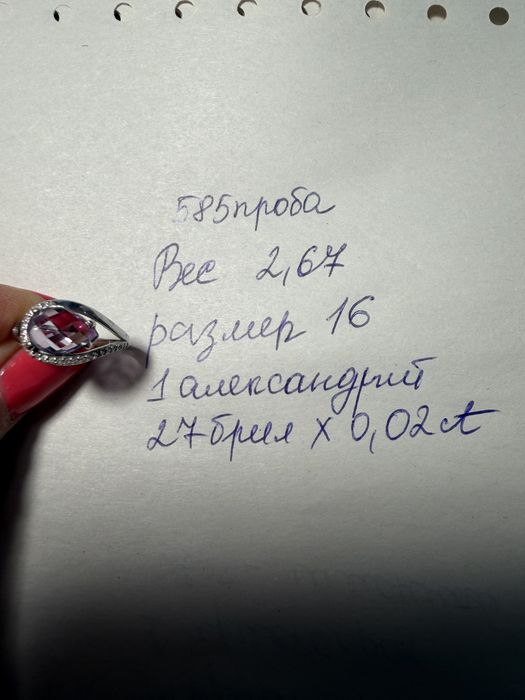 585проба
Вес 2,67
размер 16
1 александрит
27брил х 0,02ct